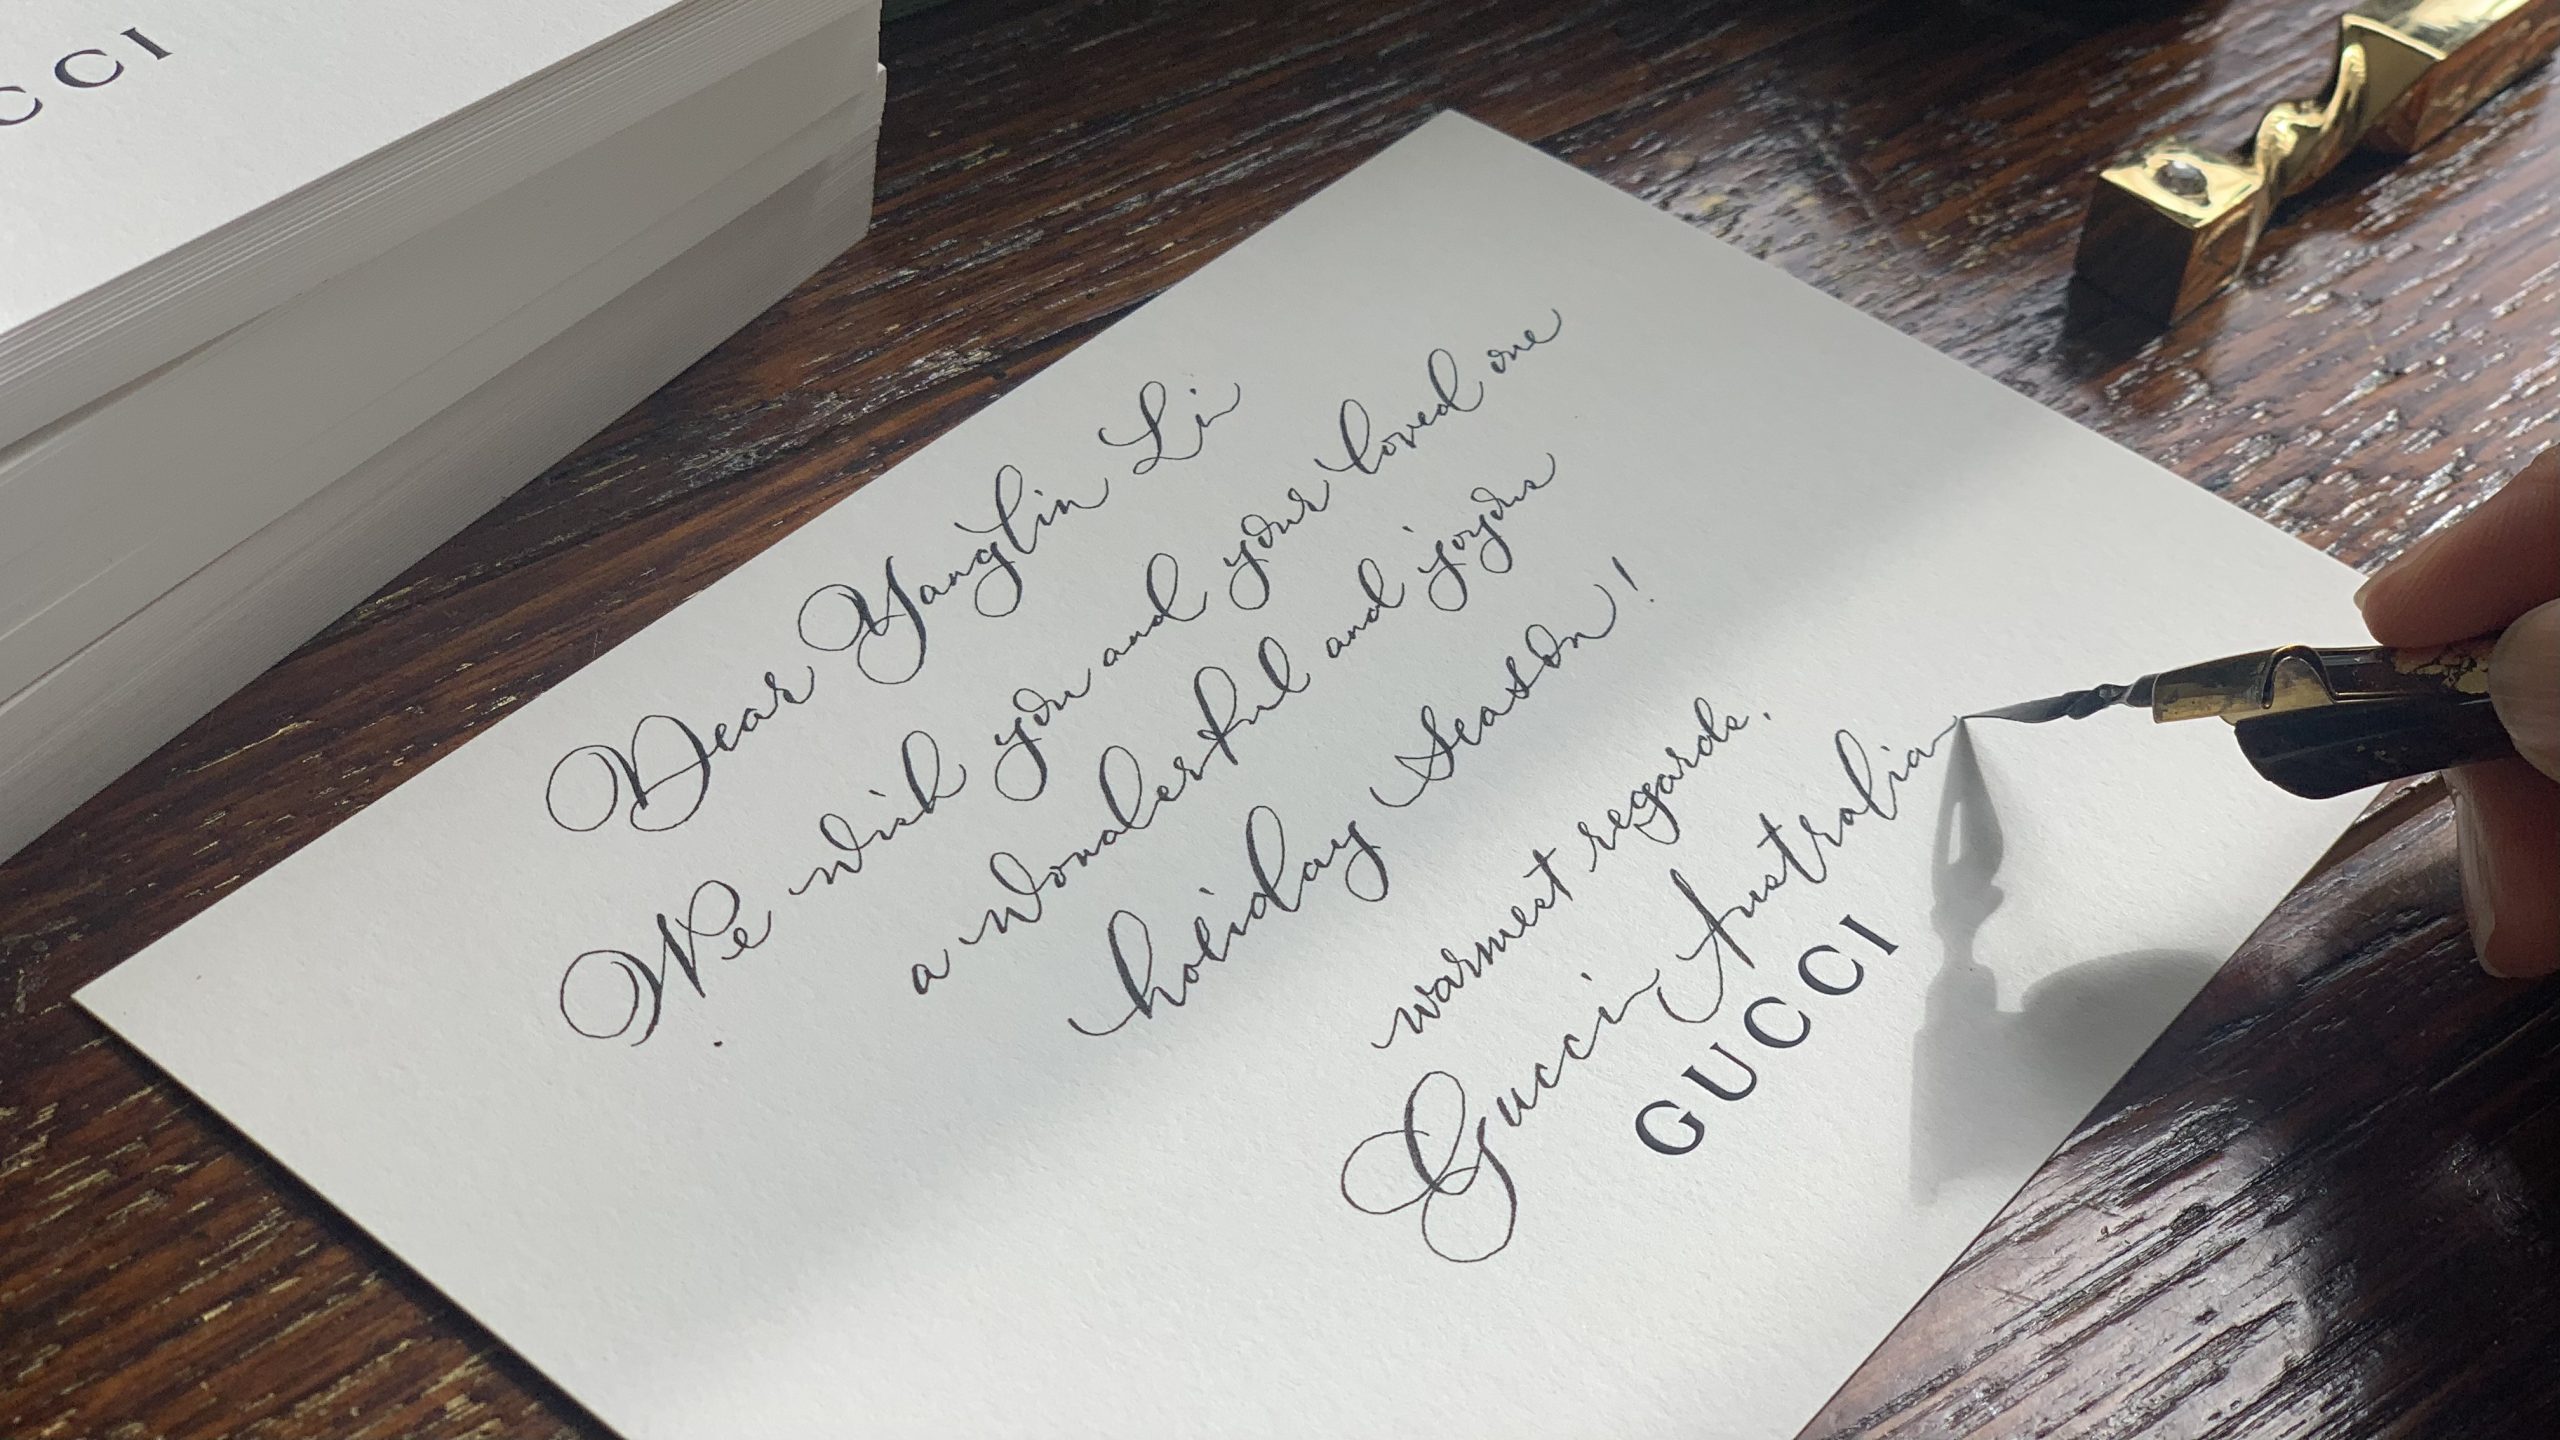 CCI
Dear Yanglin Li
We wish you and your loved one
a wonderful and joyous
holiday season!
warmest regards.
Gucci Australia
GUCCI